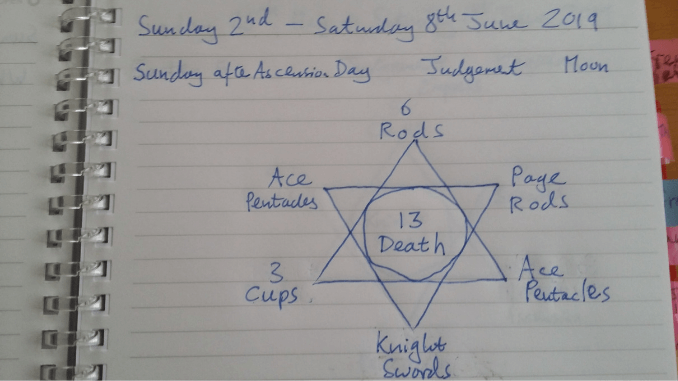 Sunday 2nd – Saturday 8th June 2019
Sunday after Ascension Day Judgement Moon
6
Rods
Ace
Pentacles
Page
Rods
13
Death
3
Cups
Ace
Pentacles
Knight
Swords